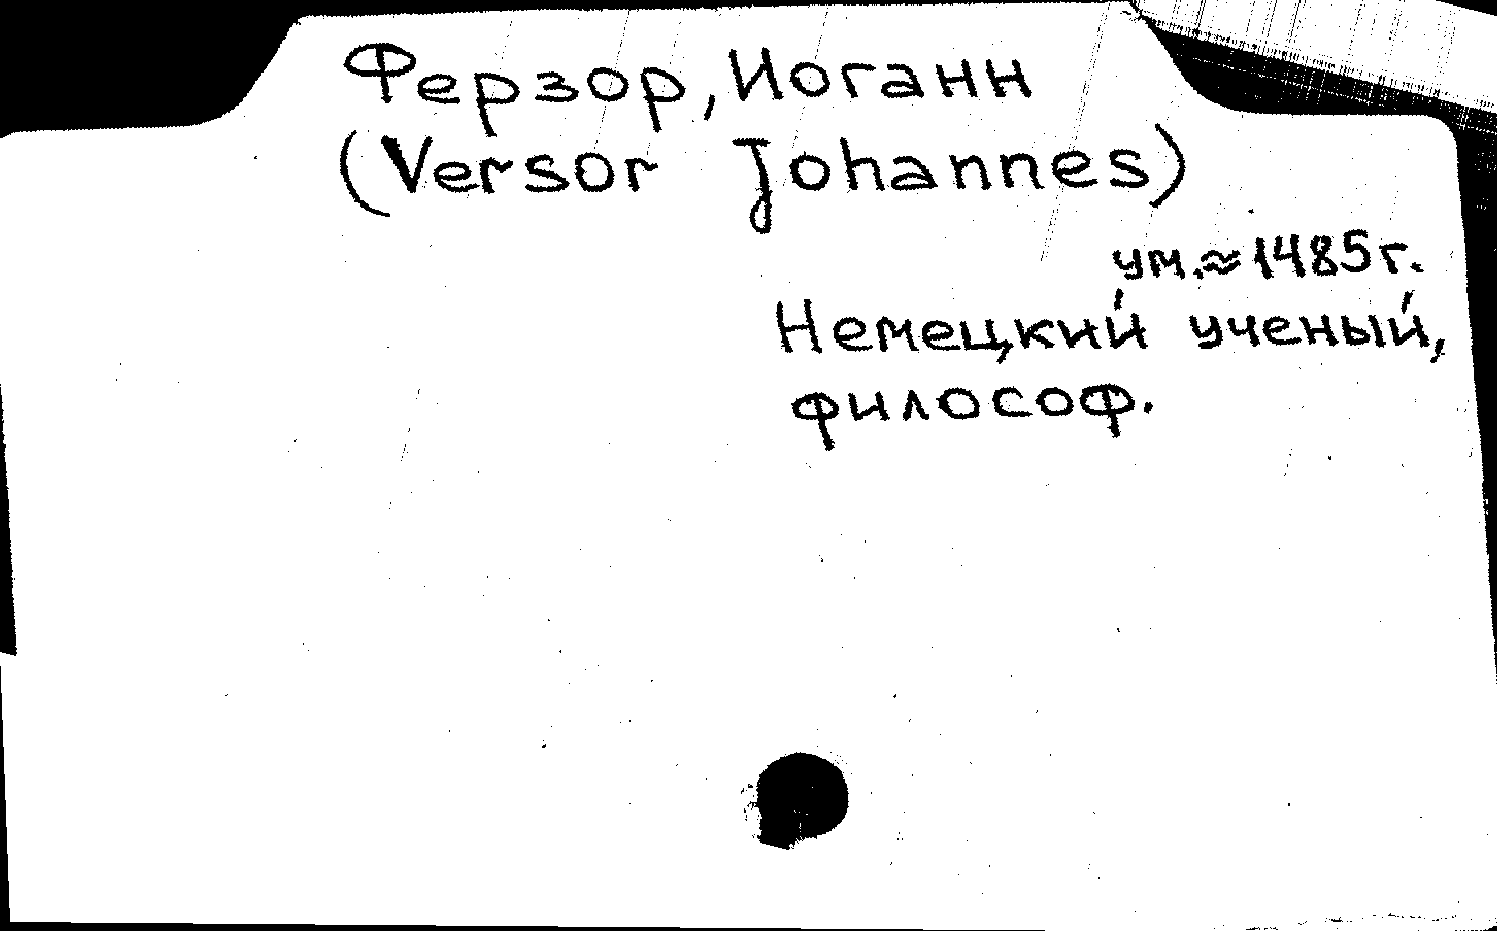 Ферзор, Иоганн
(Versor Johannes)
ум. ≈ 1485 г.
Немецкий ученый,
философ.